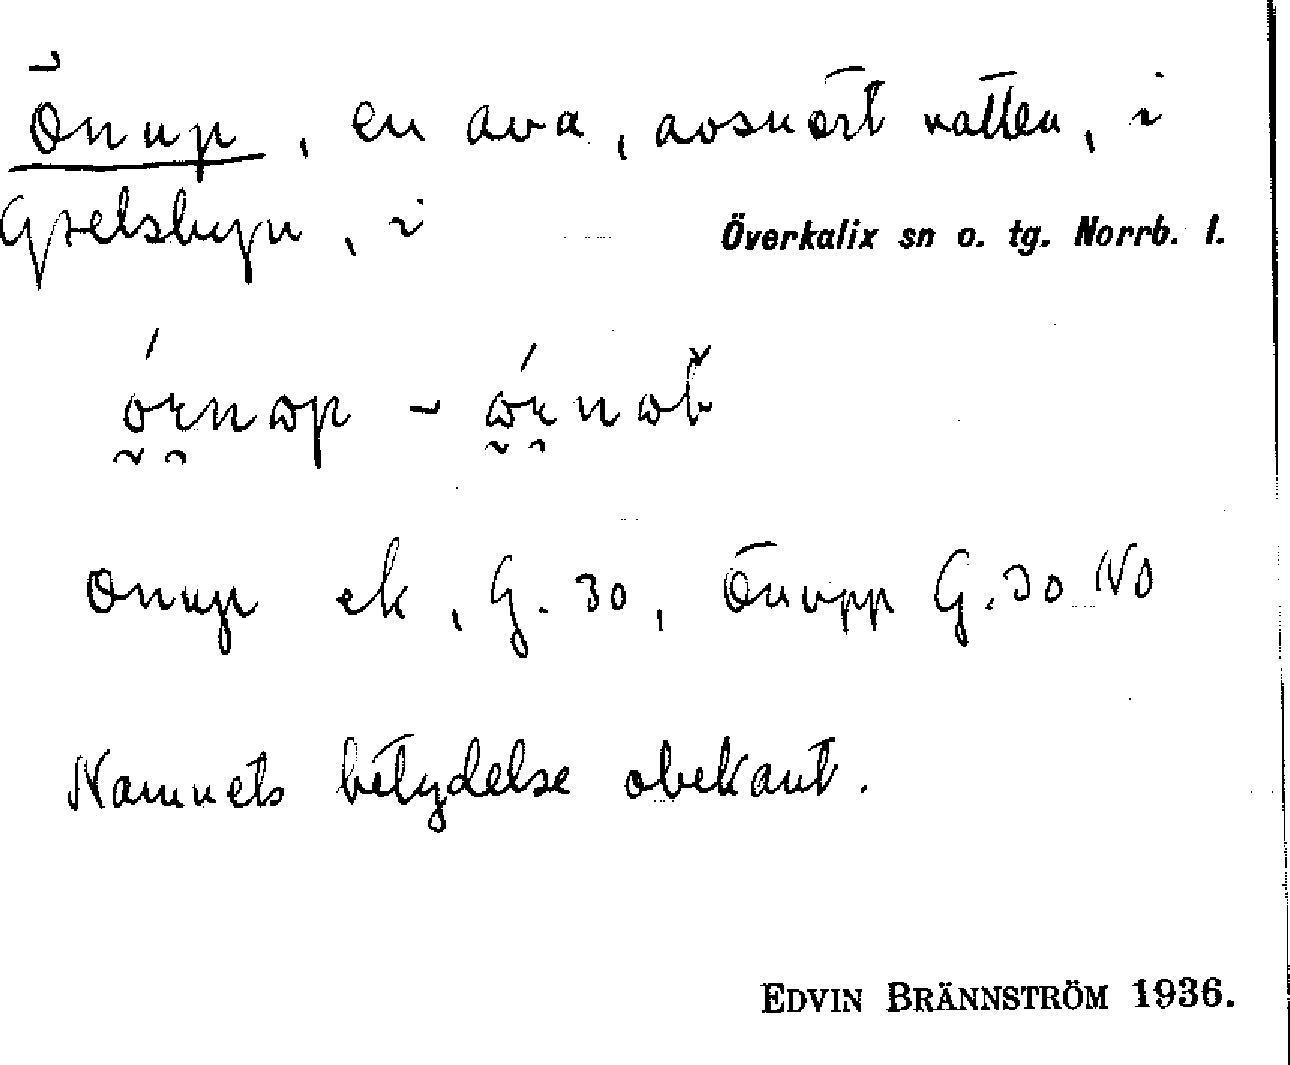 Önup, en ava, avsnört vatten, i
Gyelsbyn, i Överkalix sn o. tg. Norrb. l.
Onup ek, G. 30, Önupp G. 30 NO
Namnets betydelse obekant.
EDVIN BRÄNNSTRÖM 1936.